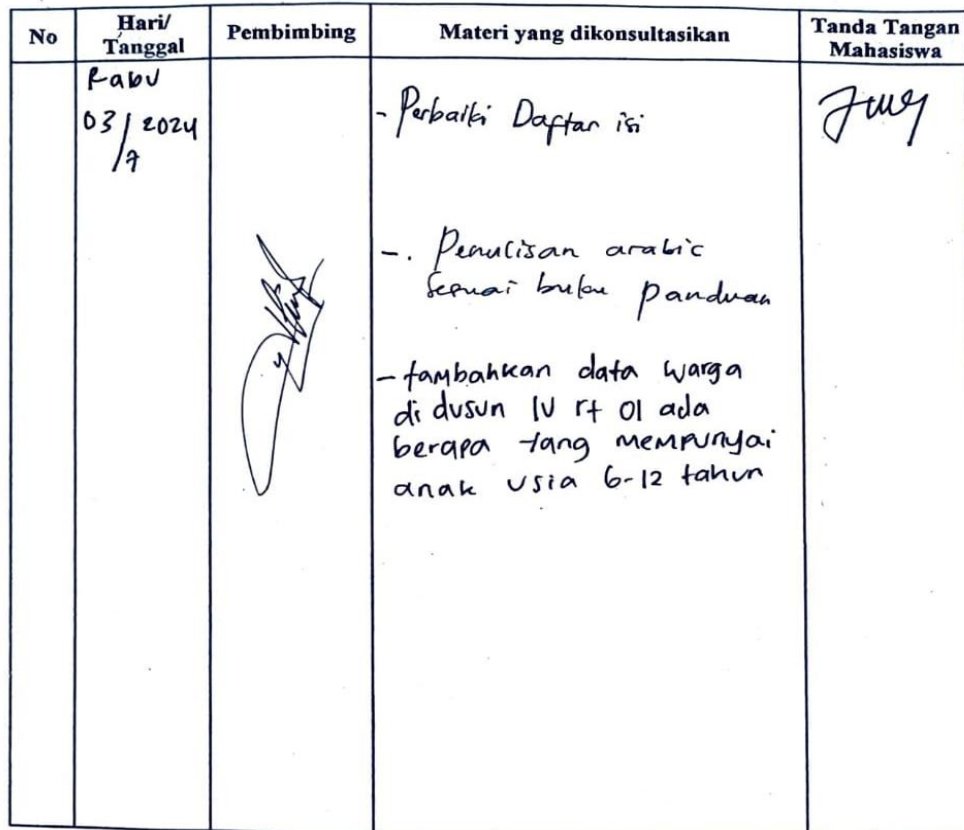 No
Hari/
Tanggal
Pembimbing
Materi yang dikonsultasikan
Tanda Tangan
Mahasiswa
Rabu
03/7 2024
- Perbaiki Daftar isi
-. Penulisan arabic
sesuai buku panduan
- tambahkan data warga
di dusun IV rt 01 ada
berapa yang mempunyai
anak usia 6-12 tahun